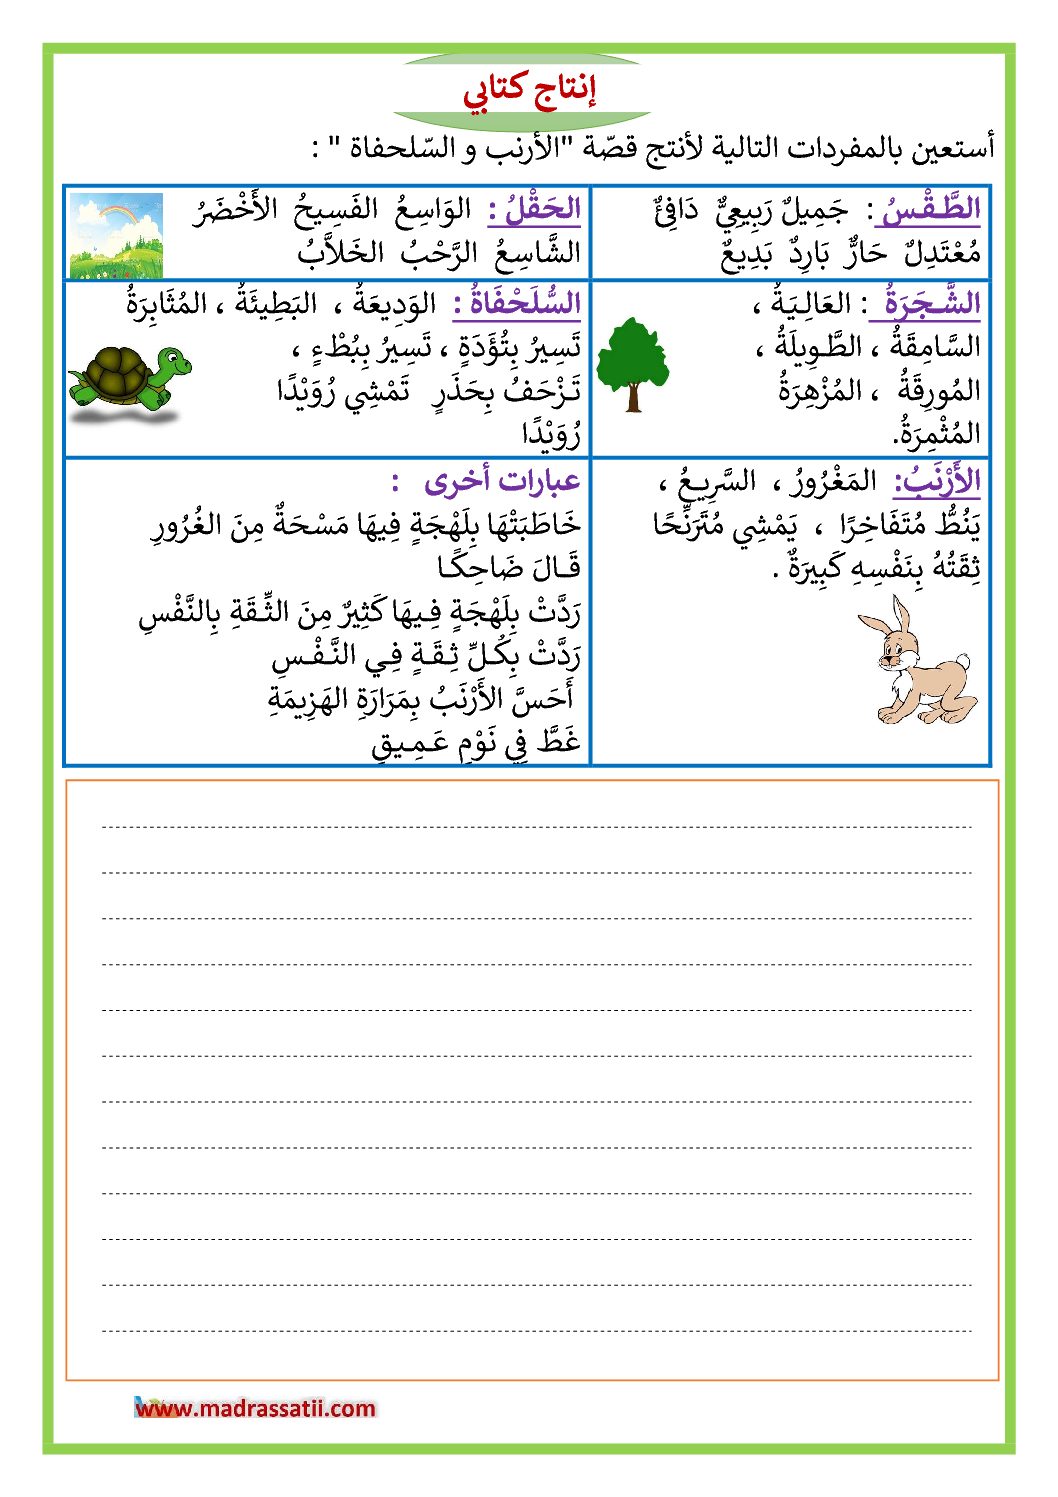 إنتاج كتابي
أستعين بالمفردات التالية لأنتج قصّة "الأرنب و السّلحفاة " :
الطَّـقْـسُ : جَمِيلٌ رَبِيعِيٌّ دَافِئٌ
مُعْتَدِلٌ حَارٌّ بَارِدٌ بَدِيعٌ
الحَقْلُ : الوَاسِعُ الفَسِيحُ الأَخْضَرُ
الشَّاسِعُ الرَّحْبُ الخَلاَّبُ
الشَّـجَرَةُ : العَالِـيَـةُ ،
السَّامِقَةُ ، الطَّـوِيلَةُ ،
المُورِقَةُ ، المُزْهِرَةُ
المُثْمِرَةُ.
السُّلَحْفَاةُ : الوَدِيعَةُ ، البَطِيئَةُ ، المُثَابِرَةُ
تَسِيرُ بِتُؤَدَةٍ ، تَسِيرُ بِبُطْءٍ ،
تَـزْحَفُ بِحَذَرٍ تَمْشِي رُوَيْدًا
رُوَيْدًا
الأَرْنَبُ: المَغْرُورُ ، السَّرِيـعُ ،
يَنُطُّ مُتَفَاخِرًا ، يَمْشِي مُتَرَنِّحًا
ثِقَتُهُ بِنَفْسِهِ كَبِيرَةٌ .
عبارات أخرى :
خَاطَبَتْهَا بِلَهْجَةٍ فِيهَا مَسْحَةٌ مِنَ الغُرُورِ
قَـالَ ضَاحِكًـا
رَدَّتْ بِلَهْجَةٍ فِـيهَا كَثِيرٌ مِنَ الثِّـقَةِ بِالنَّفْسِ
رَدَّتْ بِكُـلِّ ثِـقَـةٍ فِـي النَّـفْـسِ
أَحَسَّ الأَرْنَبُ بِمَرَارَةِ الهَزِيمَةِ
غَطَّ فِي نَوْمٍ عَـمِـيقٍ
www.madrassatii.com